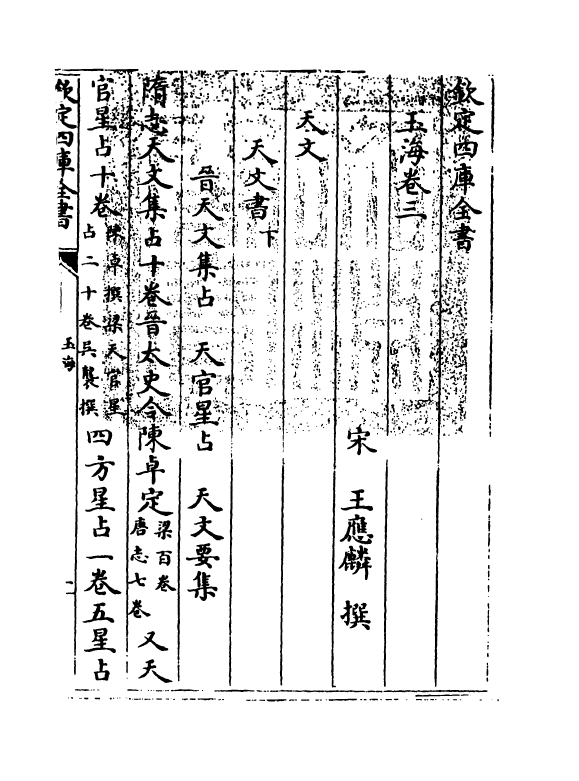 欽定四庫全書
玉海卷三
宋　王應麟　撰
天文
天文書下
晉天文集占　天官星占　天文要集
隋志天文集占十卷晉太史令陳卓定梁百卷唐志七卷又天
官星占十卷陳卓撰梁天官星占二十卷吳襲撰四方星占一卷五星占
欽定四庫全書
玉海
一